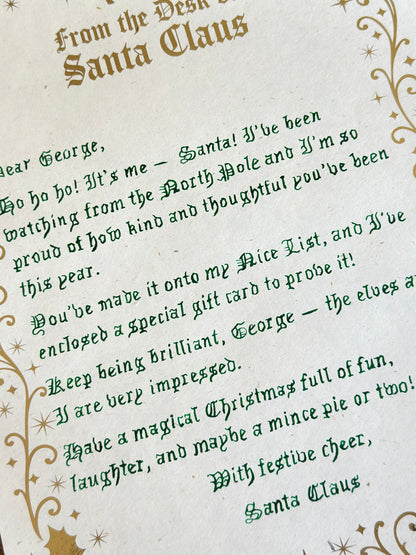 From the Desk
Santa Claus
Dear George,
Ho ho ho! It's me – Santa! I've been
watching from the North Pole and I'm so
proud of how kind and thoughtful you've been
this year.
You've made it onto my Nice List, and I've
enclosed a special gift card to prove it!
Keep being brilliant, George – the elves a
I are very impressed.
Have a magical Christmas full of fun,
laughter, and maybe a mince pie or two!
With festive cheer,
Santa Claus.